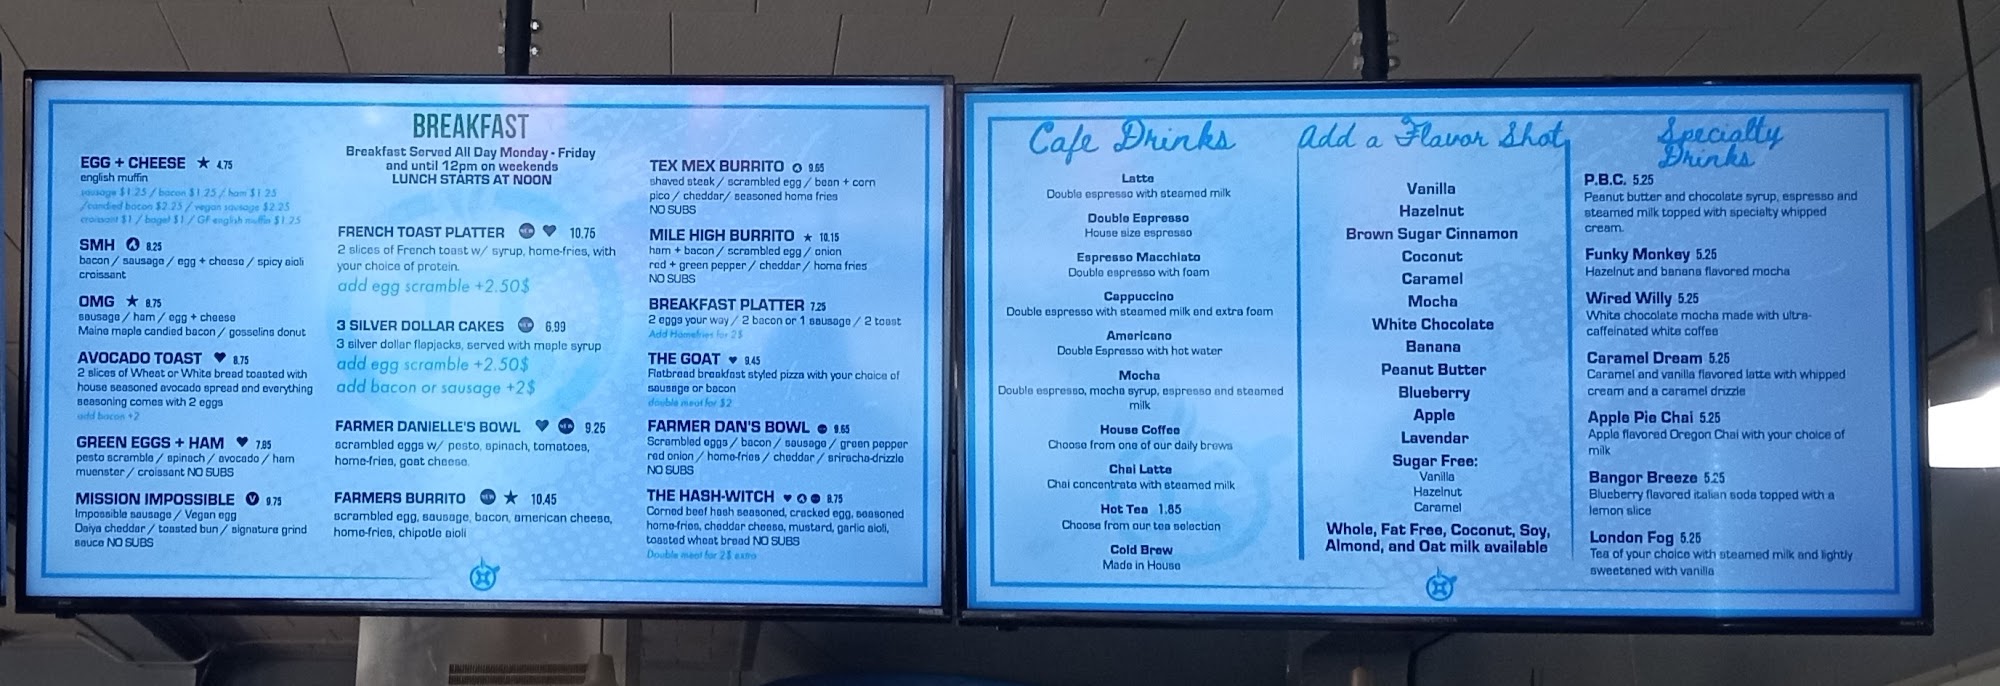 BREAKFAST
Breakfast Served All Day Monday - Friday
and until 12pm on weekends
LUNCH STARTS AT NOON
EGG + CHEESE ★ 4.75
english muffin
sausage $1.25 / bacon $1.25 / ham $1.25
/candied bacon $2.25 / vegan sausage $2.25
croissant $1 / bagel $1 / GF english muffin $1.25
SMH 8.25
bacon / sausage / egg + cheese / spicy aioli
croissant
OMG ★ 8.75
sausage / ham / egg + cheese
Maine maple candied bacon / gosselins donut
AVOCADO TOAST ♥ 8.75
2 slices of Wheat or White bread toasted with
house seasoned avocado spread and everything
seasoning comes with 2 eggs
add bacon +2
GREEN EGGS + HAM ♥ 7.85
pesto scramble / spinach / avocado / ham
muenster / croissant NO SUBS
MISSION IMPOSSIBLE V 9.75
Impossible sausage / Vegan egg
Daiya cheddar / toasted bun / signature grind
sauce NO SUBS
FRENCH TOAST PLATTER NEW ♥ 10.75
2 slices of French toast w/ syrup, home-fries, with
your choice of protein.
add egg scramble +2.50$
3 SILVER DOLLAR CAKES NEW 6.99
3 silver dollar flapjacks, served with maple syrup
add egg scramble +2.50$
add bacon or sausage +2$
FARMER DANIELLE'S BOWL ♥ NEW 9.25
scrambled eggs w/ pesto, spinach, tomatoes,
home-fries, goat cheese.
FARMERS BURRITO NEW ★ 10.45
scrambled egg, sausage, bacon, american cheese,
home-fries, chipotle aioli
TEX MEX BURRITO 9.65
shaved steak / scrambled egg / bean + corn
pico / cheddar/ seasoned home fries
NO SUBS
MILE HIGH BURRITO ★ 10.15
ham + bacon / scrambled egg / onion
red + green pepper / cheddar / home fries
NO SUBS
BREAKFAST PLATTER 7.25
2 eggs your way / 2 bacon or 1 sausage / 2 toast
Add Homefries for 2$
THE GOAT ♥ 9.45
Flatbread breakfast styled pizza with your choice of
sausage or bacon
double meat for $2
FARMER DAN'S BOWL 9.65
Scrambled eggs / bacon / sausage / green pepper
red onion / home-fries / cheddar / sriracha-drizzle
NO SUBS
THE HASH-WITCH ♥ 8.75
Corned beef hash seasoned, cracked egg, seasoned
home-fries, cheddar cheese, mustard, garlic aioli,
toasted wheat bread NO SUBS
Double meat for 2$ extra
Cafe Drinks
Latte
Double espresso with steamed milk
Double Espresso
House size espresso
Espresso Macchiato
Double espresso with foam
Cappuccino
Double espresso with steamed milk and extra foam
Americano
Double Espresso with hot water
Mocha
Double espresso, mocha syrup, espresso and steamed
milk
House Coffee
Choose from one of our daily brews
Chai Latte
Chai concentrate with steamed milk
Hot Tea 1.85
Choose from our tea selection
Cold Brew
Made in House
Add a Flavor Shot
Vanilla
Hazelnut
Brown Sugar Cinnamon
Coconut
Caramel
Mocha
White Chocolate
Banana
Peanut Butter
Blueberry
Apple
Lavendar
Sugar Free:
Vanilla
Hazelnut
Caramel
Whole, Fat Free, Coconut, Soy,
Almond, and Oat milk available
Specialty
Drinks
P.B.C. 5.25
Peanut butter and chocolate syrup, espresso and
steamed milk topped with specialty whipped
cream.
Funky Monkey 5.25
Hazelnut and banana flavored mocha
Wired Willy 5.25
White chocolate mocha made with ultra-
caffeinated white coffee
Caramel Dream 5.25
Caramel and vanilla flavored latte with whipped
cream and a caramel drizzle
Apple Pie Chai 5.25
Apple flavored Oregon Chai with your choice of
milk
Bangor Breeze 5.25
Blueberry flavored italian soda topped with a
lemon slice
London Fog 5.25
Tea of your choice with steamed milk and lightly
sweetened with vanilla